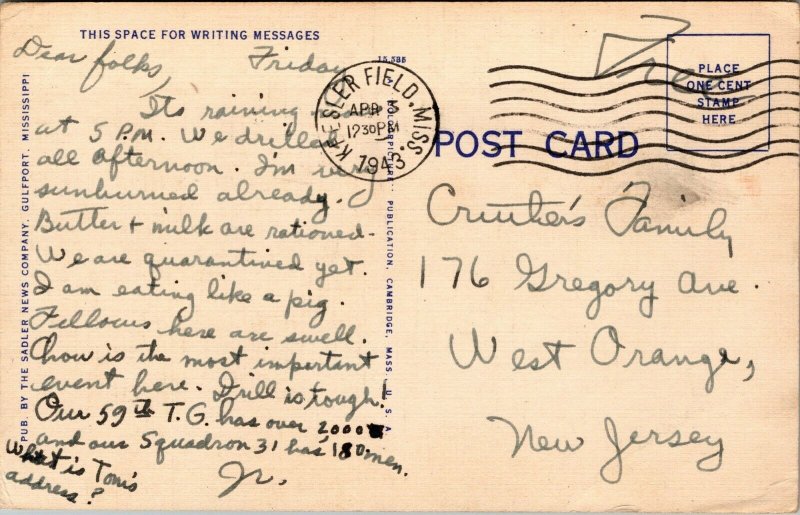 THIS SPACE FOR WRITING MESSAGES
Dear folks, Friday
Its raining now
at 5 P.M. We drilled
all afternoon. I'm very
sunburned already.
Butter + milk are rationed.
We are quarantined yet.
I am eating like a pig.
Fellows here are swell.
Chow is the most important
event here. Drill is tough!
Our 59th T.G. has over 2000
and our Squadron 31 has 180 men.
What is Tom's
address?
Jr.
PUB. BY THE SADLER NEWS COMPANY, GULFPORT, MISSISSIPPI
15,585
"COLOURPICTURE" PUBLICATION, CAMBRIDGE, MASS., U.S.A.
KEESLER FIELD, MISS.
APR 3
1230PM
1943
Free
PLACE
ONE CENT
STAMP
HERE
POST CARD
Family
176 Gregory Ave.
West Orange,
New Jersey